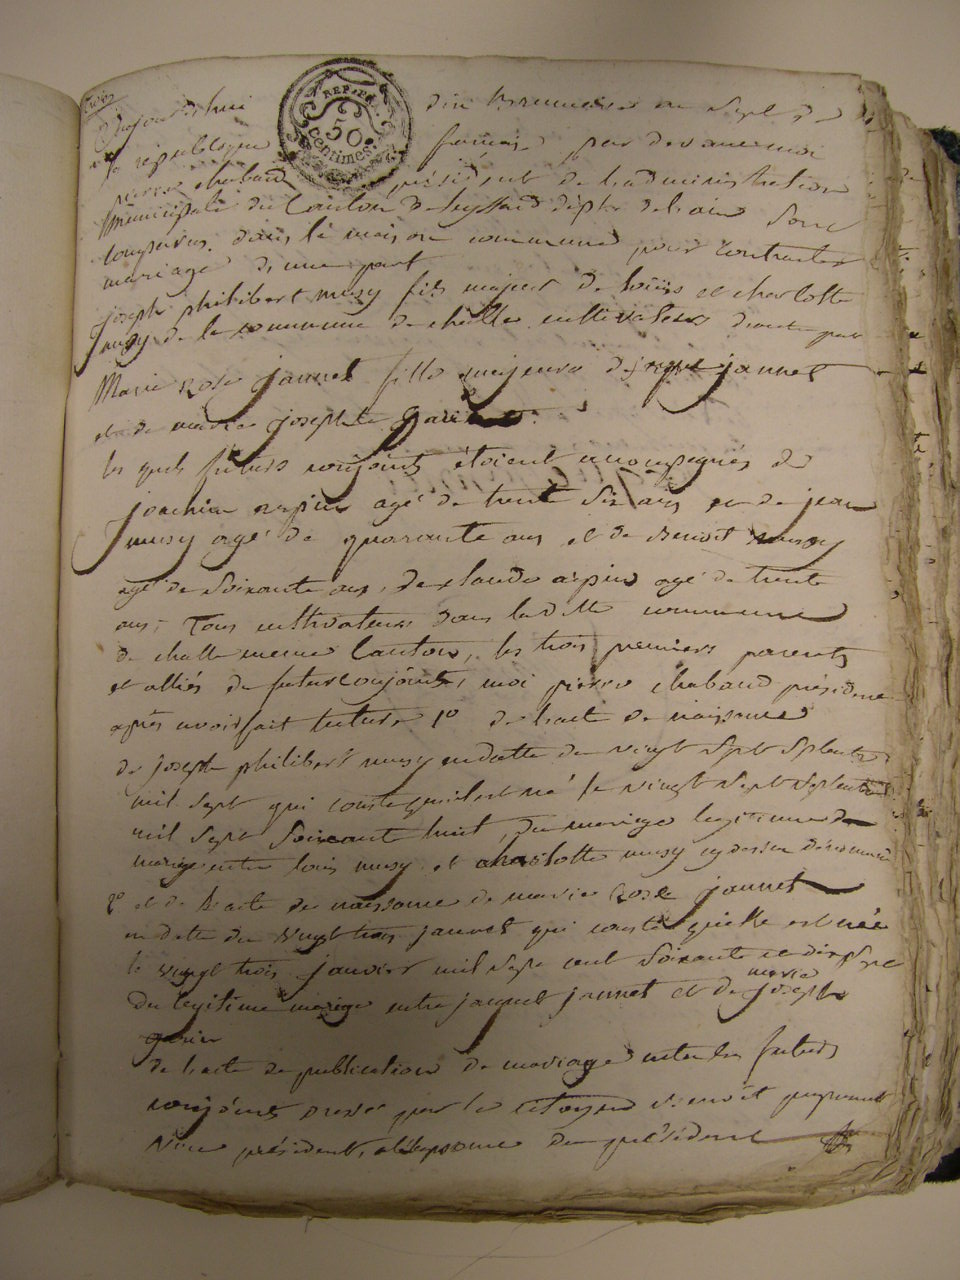 aujourd'hui dix Brumaire an Sept de
la republique française par devant moi
pierre chabaud président de l'administration
municipale du Canton de Seyssel dépt de l'ain sont
comparus dans la maison commune pour contracter
mariage d'une part
joseph philibert musy fils majeur de louis et charlotte
musy de la commune de challe cultivateur d'autre part
Marie Rose jannet fille majeure de jannet
et de marie josephte
les quels futurs conjoints étoient accompagnés de
joachim arpin agé de trente six ans et de jean
musy agé de quarante ans et de Benoit musy
agé de soixante ans, de claude arpin agé de trente
ans, Tous cultivateurs dans la ditte commune
de challe meme Canton, les trois premiers parents
et alliés de futurs conjoints, moi pierre chabaud président
après avoir fait lecture 1º de l'acte de naissance
de joseph philibert musy en datte du vingt sept septembre
mil sept qui conste qu'il est né le vingt sept septembre
mil sept soixante huit, du mariage legitime de
mariage entre louis musy et charlotte musy cy dessus dénommés
2º et de l'acte de naissance de marie Rose jannet
en datte du vingt trois janvier qui conste qu'elle est née
le vingt trois janvier mil sept cent soixante et dix sept
du legitime mariage entre jannet et de marie joseph
garin
de l'acte de publication de mariage entre les futurs
conjoints dressé par le citoyen Benoit
vice président, a l'absence du président
REP. FRA.
50
centimes